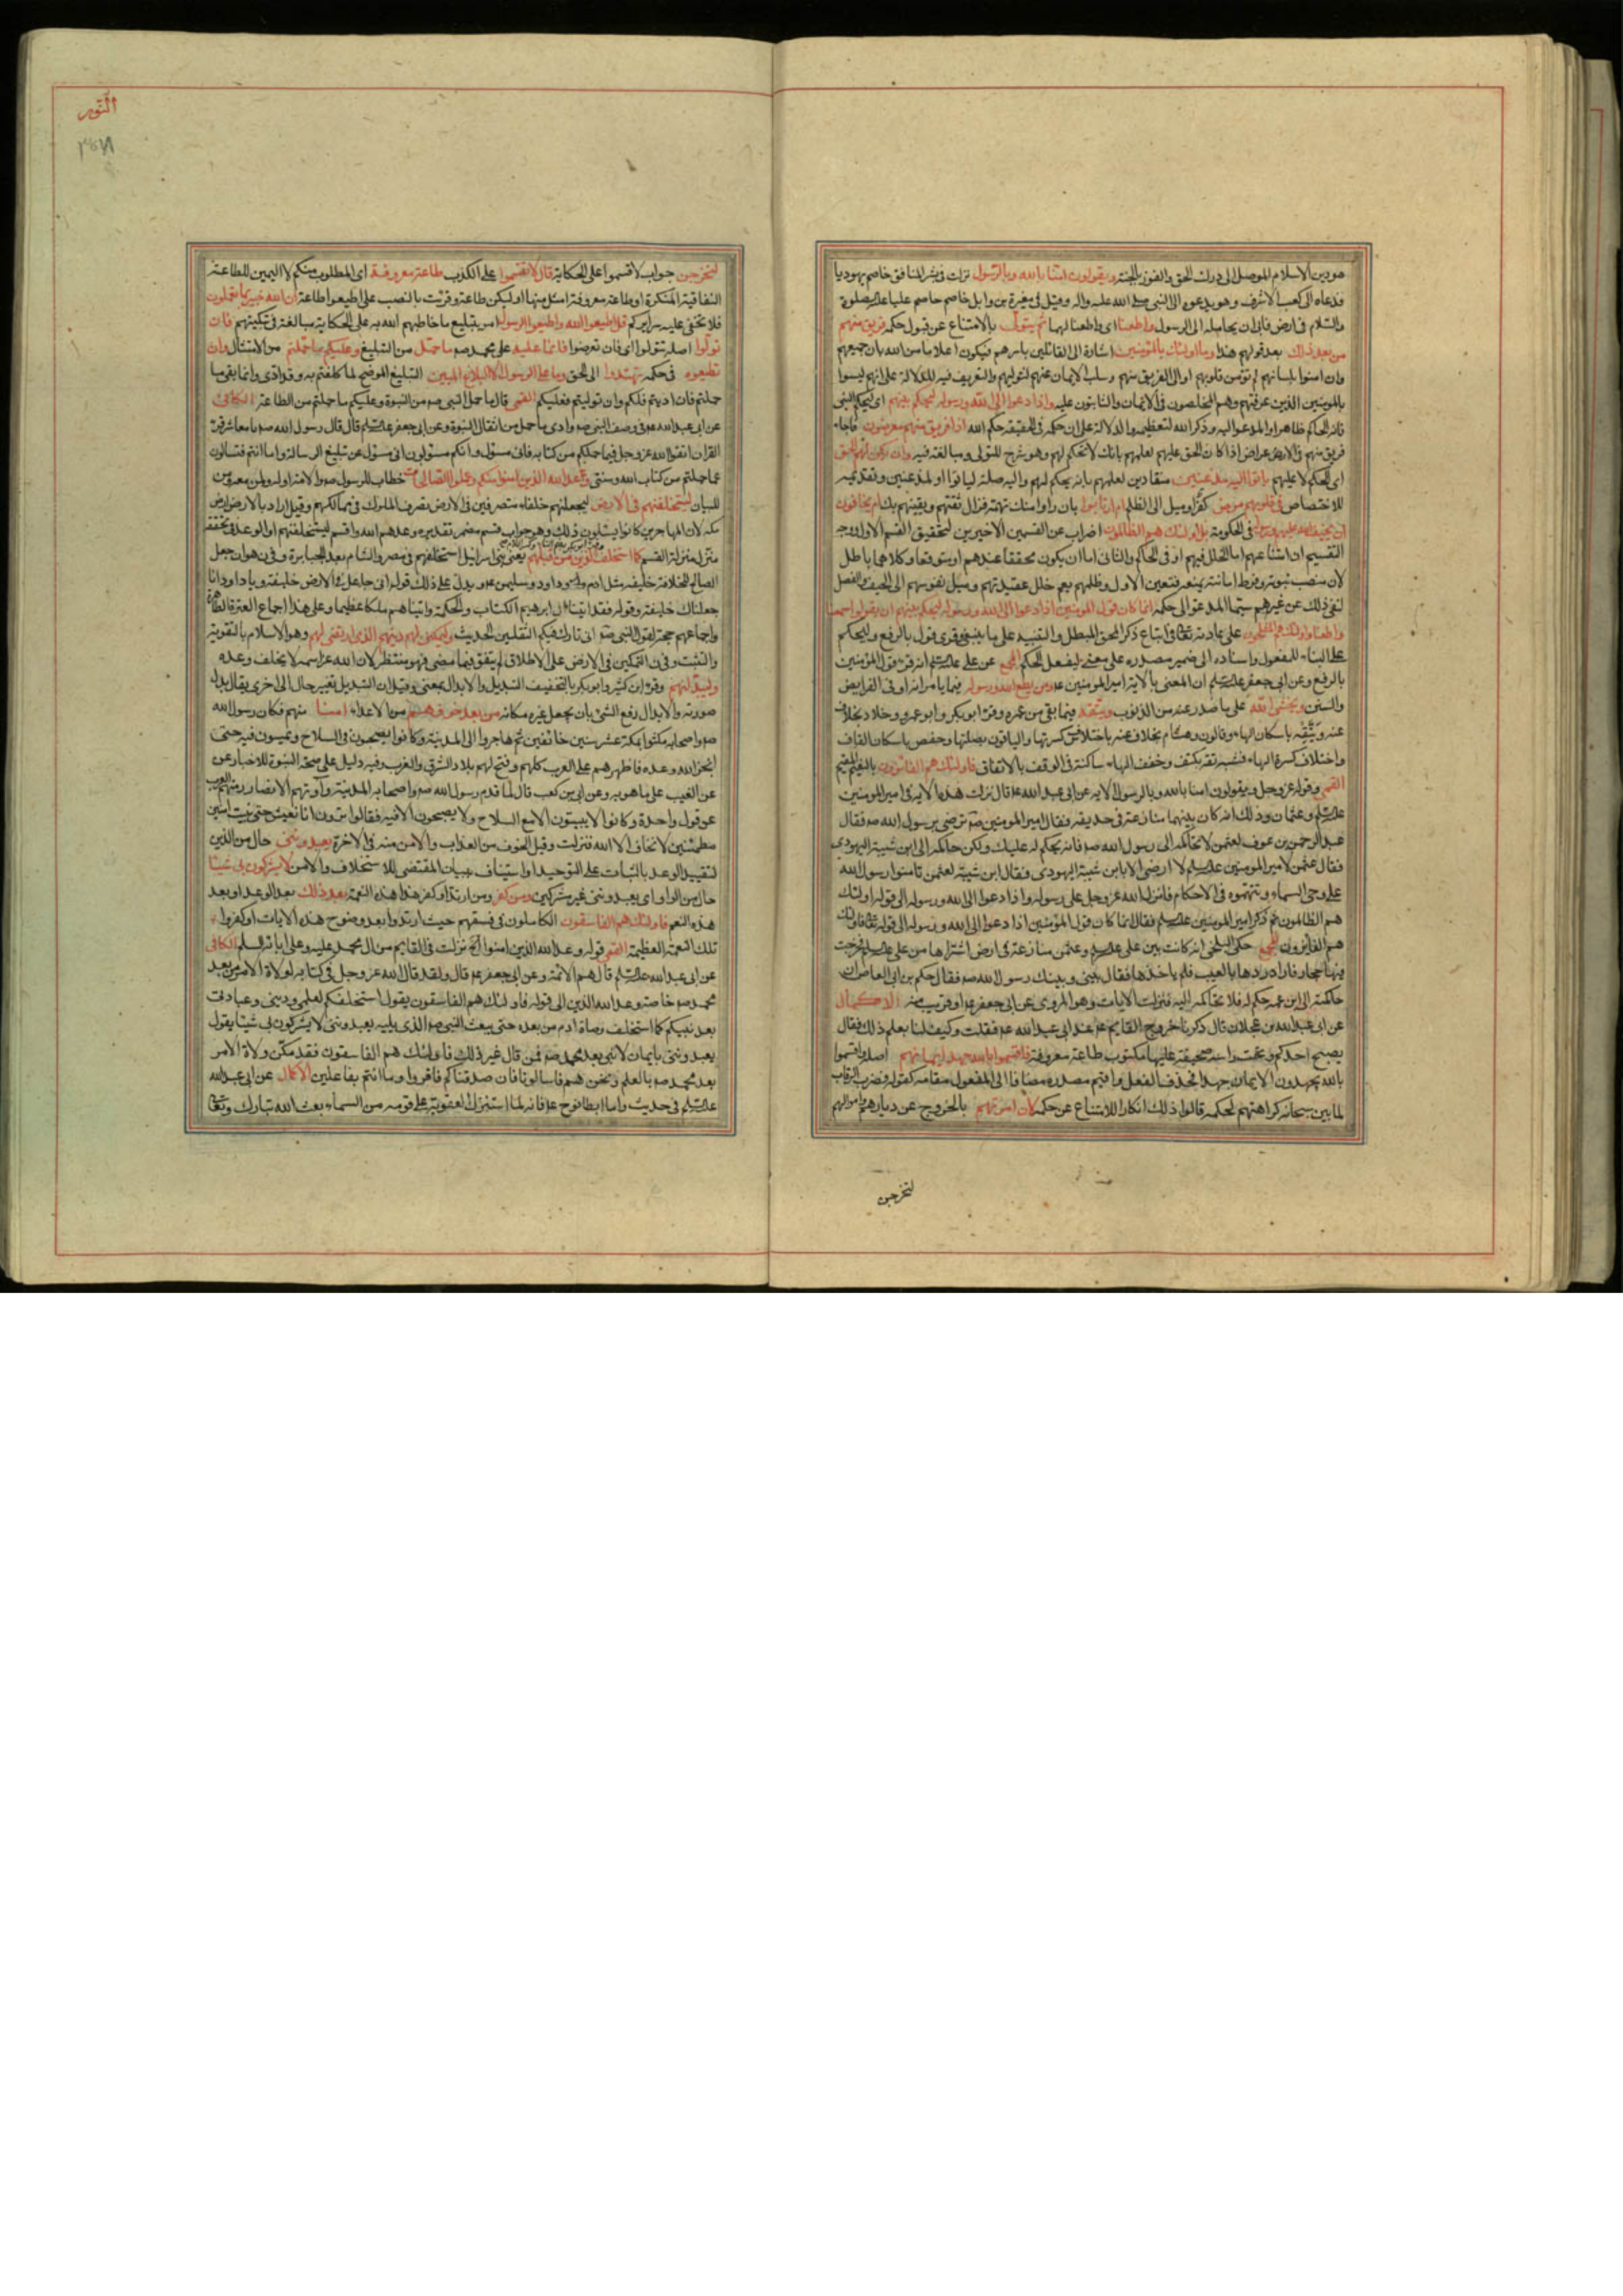 هو دين الاسلام الموصل الى درك الحق والفوز بالجنة ويقولون امنا بالله وبالرسول نزلت فى بشر المنافق خاصم يهوديا
فدعاه الى كعب الاشرف وهو يدعوه الى النبى صلى الله عليه واله وقيل فى مغيرة بن وابل خاصم عليا عليه الصلوة
والسلام فى ارض فابى ان يحاكمه الى الرسول واطعنا اى واطعنا لهما ثم يتولى بالامتناع عن قبول حكمه فريق منهم
من بعد ذلك بعد قولهم هذا وما اولئك بالمؤمنين اشارة الى القائلين باسرهم فيكون اعلاما من الله بان جميعهم
وان امنوا بلسانهم لم تؤمن قلوبهم او الى الفريق منهم وسلب الايمان عنهم لتوليهم والتعريف فيه للدلالة على انهم ليسوا
بالمؤمنين الذين عرفتهم وهم المخلصون فى الايمان والثابتون عليه واذا دعوا الى الله ورسوله ليحكم بينهم اى ليحكم النبى
فانه الحاكم ظاهرا والمدعو اليه وذكر الله لتعظيمه والدلالة على ان حكمه فى الحقيقة حكم الله اذا فريق منهم معرضون فاجاء
فريق منهم الاعراض اذا كان الحق عليهم لعلمهم بانك لا تحكم لهم وهو شرح للتولى ومبالغة فيه وان يكن لهم الحق
اى الحكم لا عليهم ياتوا اليه مذعنين منقادين لعلمهم بانه يحكم لهم واليه صلة لياتوا او لمذعنين وتقديمه
للاختصاص فى قلوبهم مرض كفر او ميل الى الظلم ام ارتابوا بان راوا منك تهمة فزال ثقتهم ويقينهم بك ام يخافون
ان يحيف الله عليهم ورسوله فى الحكومة بل اولئك هم الظالمون اضراب عن القسمين الاخيرين لتحقيق القسم الاول ووجه
التقسيم ان امتناعهم اما لخلل فيهم او فى الحاكم والثانى اما ان يكون محققا عندهم او متوقعا وكلاهما باطل
لان منصب نبوته وفرط امانته يمنعه فتعين الاول وظلمهم يعم خلل عقيدتهم وميل نفوسهم الى الحيف والفصل
لنفى ذلك عن غيرهم سيما المدعو الى حكمه انما كان قول المؤمنين اذا دعوا الى الله ورسوله ليحكم بينهم ان يقولوا سمعنا
واطعنا واولئك هم المفلحون على عادته تعالى فى اتباع ذكر المحق المبطل والتنبيه على ما ينبغى وقرى قول بالرفع وليحكم
على البناء للمفعول واسناده الى ضمير مصدره على معنى ليفعل الحكم المجمع عن على عليه السلم انه قرء قول المؤمنين
بالرفع وعن ابى جعفر عليه السلم ان المعنى بالاية امير المؤمنين ع ومن يطع الله ورسوله فيما يامرانه او فى الفرايض
والسنن ويخشى الله على ما صدر عنه من الذنوب ويتقه فيما بقى من عمره وقرء ابو بكر وابو عمرو وخلاد بخلاف
عنه ويتقه باسكان الهاء وقالون وهشام بخلاف عنه باختلاس كسرتها والباقون بصلتها وحفص باسكان القاف
واختلاف كسرة الهاء فشبه تقه بكتف وخفف الهاء ساكنة فى الوقف بالاتفاق فاولئك هم الفائزون بالنعيم المقيم
القمى وقوله عز وجل ويقولون امنا بالله وبالرسول الاية عن ابى عبد الله ع قال نزلت هذه الاية فى امير المؤمنين
عليه السلم وعثمان وذلك انه كان بينهما منازعة فى حديقة فقال امير المؤمنين ترضى برسول الله صم فقال
عبد الرحمن بن عوف لعثمن لا تحاكمه الى رسول الله صم فانه يحكم له عليك ولكن حاكمه الى ابن شيبة اليهودى
فقال عثمن لامير المؤمنين عليه السلم لا ارضى الا بابن شيبة اليهودى فقال ابن شيبة لعثمن تامنوا رسول الله
على وحى السماء وتتهموه فى الاحكام فانزل الله عز وجل على رسوله واذا دعوا الى الله ورسوله الى قوله اولئك
هم الظالمون ثم ذكر امير المؤمنين عليه السلم فقال انما كان قول المؤمنين اذا دعوا الى الله ورسوله الى قوله تعالى فاولئك
هم الفائزون المجمع حكى البلخى انه كانت بين على عليه السلم وعثمن منازعة فى ارض اشتراها من على عليه السلم فخرجت
فيها احجار فاراد ردها بالعيب فلم ياخذها فقال بينى وبينك رسول الله صم فقال حكم بن ابى العاص ان
حاكمته الى ابن عمه حكم له فلا تحاكمه اليه فنزلت الايات وهو المروى عن ابى جعفر ع او قريب منه الاكمال
عن ابى عبد الله بن عجلان قال ذكرنا خروج القايم ع عند ابى عبد الله ع فقلت وكيف لنا بعلم ذلك فقال
يصبح احدكم وتحت راسه صحيفة عليها مكتوب طاعة معروفة واقسموا بالله جهد ايمانهم اصله واقسموا
بالله يجهدون الايمان جهدا فحذف الفعل واقيم مصدره مضافا الى المفعول مقامه كقوله فضرب الرقاب
لما بين سبحانه كراهتهم لحكمه قالوا ذلك انكارا للامتناع عن حكمه لان امرتهم بالخروج عن ديارهم واموالهم
لنخرجن
النور
لنخرجن جواب لاقسموا على الحكاية قال لا تقسموا على الكذب طاعة معروفة اى المطلوب منكم لا اليمين للطاعة
النفاقية المنكرة او طاعة معروفة امثل منها او ليكن طاعة وقرئت بالنصب على اطيعوا طاعة ان الله خبير بما تعملون
فلا تخفى عليه سرايركم قل اطيعوا الله واطيعوا الرسول امر بتبليغ ما خاطبهم الله به على الحكاية مبالغة فى تبكيتهم فان
تولوا اصله تتولوا اى فان تعرضوا فانما عليه على محمد صم ما حمل من التبليغ وعليكم ما حملتم من الامتثال وان
تطيعوه فى حكمه تهتدوا الى الحق وما على الرسول الا البلاغ المبين التبليغ الموضح لما كلفتم به وقد ادى وانما بقى ما
حملتم فان اديتم فلكم وان توليتم فعليكم القمى قال ما حمل النبى صم من النبوة وعليكم ما حملتم من الطاعة الكافى
عن ابى عبد الله ع فى وصف النبى صم وادى ما حمل من اثقال النبوة وعن ابى جعفر عليه السلم قال قال رسول الله صم يا معاشر قراء
القران اتقوا الله عز وجل فيما حملكم من كتابه فانى مسئول وانكم مسئولون انى مسئول عن تبليغ الرسالة واما انتم فتسالون
عما حملتم من كتاب الله وسنتى وعد الله الذين امنوا منكم وعملوا الصالحات خطاب للرسول صم والامة او له ولمن معه ومن
للبيان ليستخلفنهم فى الارض ليجعلنهم خلفاء متصرفين فى الارض تصرف الملوك فى ممالكهم وقيل اراد بالارض ارض
مكة لان المهاجرين كانوا يسئلون ذلك وهو جواب قسم مضمر تقديره وعدهم الله واقسم ليستخلفنهم او الوعد فى تحققه
منزل منزلة القسم كما استخلف الذين من قبلهم يعنى بنى اسرائيل استخلفهم فى مصر والشام بعد الجبابرة وفى ن هو ان جعل
الصالح للخلافة خليفة مثل ادم وداود وسليمن ع ويدل على ذلك قوله انى جاعل فى الارض خليفة ويا داود انا
جعلناك خليفة وقوله فقد اتينا ال ابرهيم الكتاب والحكمة واتيناهم ملكا عظيما وعلى هذا اجماع العترة الطاهرة
واجماعهم حجة لقول النبى صم انى تارك فيكم الثقلين الحديث وليمكنن لهم دينهم الذى ارتضى لهم وهو الاسلام بالتقوية
والتثبت وفى ن التمكين فى الارض على الاطلاق لم يتفق فيما مضى فهو منتظر لان الله عز اسمه لا يخلف وعده
وليبدلنهم وقرء ابن كثير وابو بكر بالتخفيف التبديل والابدال بمعنى وقيل ان التبديل تغيير حال الى اخرى يقال بدل
صورته والابدال رفع الشئ بان يجعل غيره مكانه من بعد خوفهم من الاعداء امنا منهم فكان رسول الله
صم واصحابه مكثوا بمكة عشر سنين خائفين ثم هاجروا الى المدينة وكانوا يصبحون فى السلاح ويمسون فيه حتى
انجز الله وعده فاظهرهم على العرب كلهم وفتح لهم بلاد الشرق والغرب وفيه دليل على صحة النبوة للاخبار عن
عن الغيب على ما هو به وعن ابى بن كعب قال لما قدم رسول الله صم واصحابه المدينة وآوتهم الانصار رمتهم العرب
عن قوس واحدة وكانوا لا يبيتون الا مع السلاح ولا يصبحون الا فيه فقالوا ترون انا نعيش حتى نبيت امنين
مطمئنين لا نخاف الا الله فنزلت وقيل الخوف من العذاب والامن منه فى الاخرة يعبدوننى حال من الذين
لتقييد الوعد بالثبات على التوحيد او استيناف ببيان المقتضى للاستخلاف والامن لا يشركون بى شيئا
حال من الواو اى يعبدوننى غير مشركين ومن كفر ومن ارتد او كفر هذا هذه النعمة بعد ذلك بعد الوعد او بعد
هذه النعم فاولئك هم الفاسقون الكاملون فى فسقهم حيث ارتدوا بعد وضوح هذه الايات او كفروا
تلك النعمة العظيمة القمى قوله وعد الله الذين امنوا الخ نزلت فى القايم من ال محمد عليه وعلى ابائه السلم الكافى
عن ابى عبد الله عليه السلم قال هم الائمة وعن ابى جعفر ع قال ولقد قال الله عز وجل فى كتابه لولاة الامر من بعد
محمد صم خاصة وعد الله الذين الى قوله فاولئك هم الفاسقون يقول استخلفكم لعلمى ودينى وعبادتى
بعد نبيكم كما استخلف وصاة ادم من بعده حتى يبعث النبى صم الذى يليه يعبدوننى لا يشركون بى شيئا يقول
يعبدوننى بايمان لا نبى بعد محمد صم فمن قال غير ذلك فاولئك هم الفاسقون فقد مكن ولاة الامر
بعد محمد صم بالعلم ونحن هم فاسالونا فان صدقناكم فاقروا وما انتم بفاعلين الاكمال عن ابى عبد الله
عليه السلم فى حديث واما ابطا نوح ع فانه لما استنزل العقوبة على قومه من السماء بعث الله تبارك وتعالى